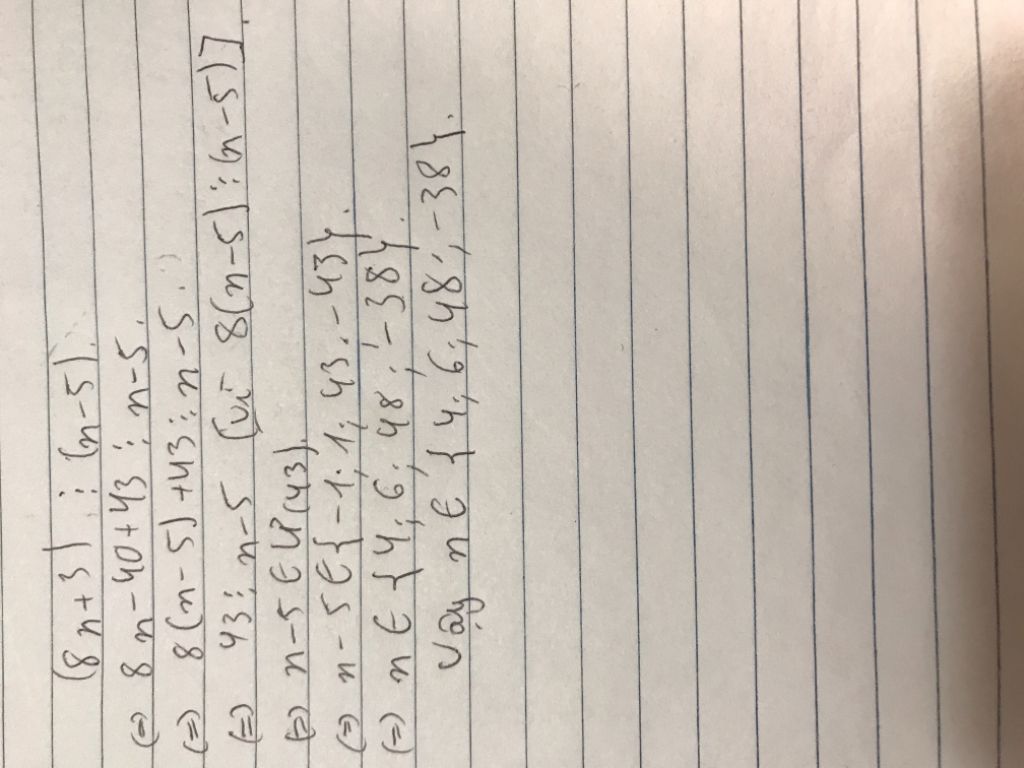 (8n+3) ⋮ (n-5).
(=) 8n-40+43 ⋮ n-5.
(=) 8(n-5)+43 ⋮ n-5.
(=) 43 ⋮ n-5 [vì 8(n-5) ⋮ (n-5)]
(=) n-5 ∈ Ư(43).
(=) n-5 ∈ {-1; 1; 43; -43}.
(=) n ∈ {4; 6; 48; -38}.
Vậy n ∈ {4; 6; 48; -38}.